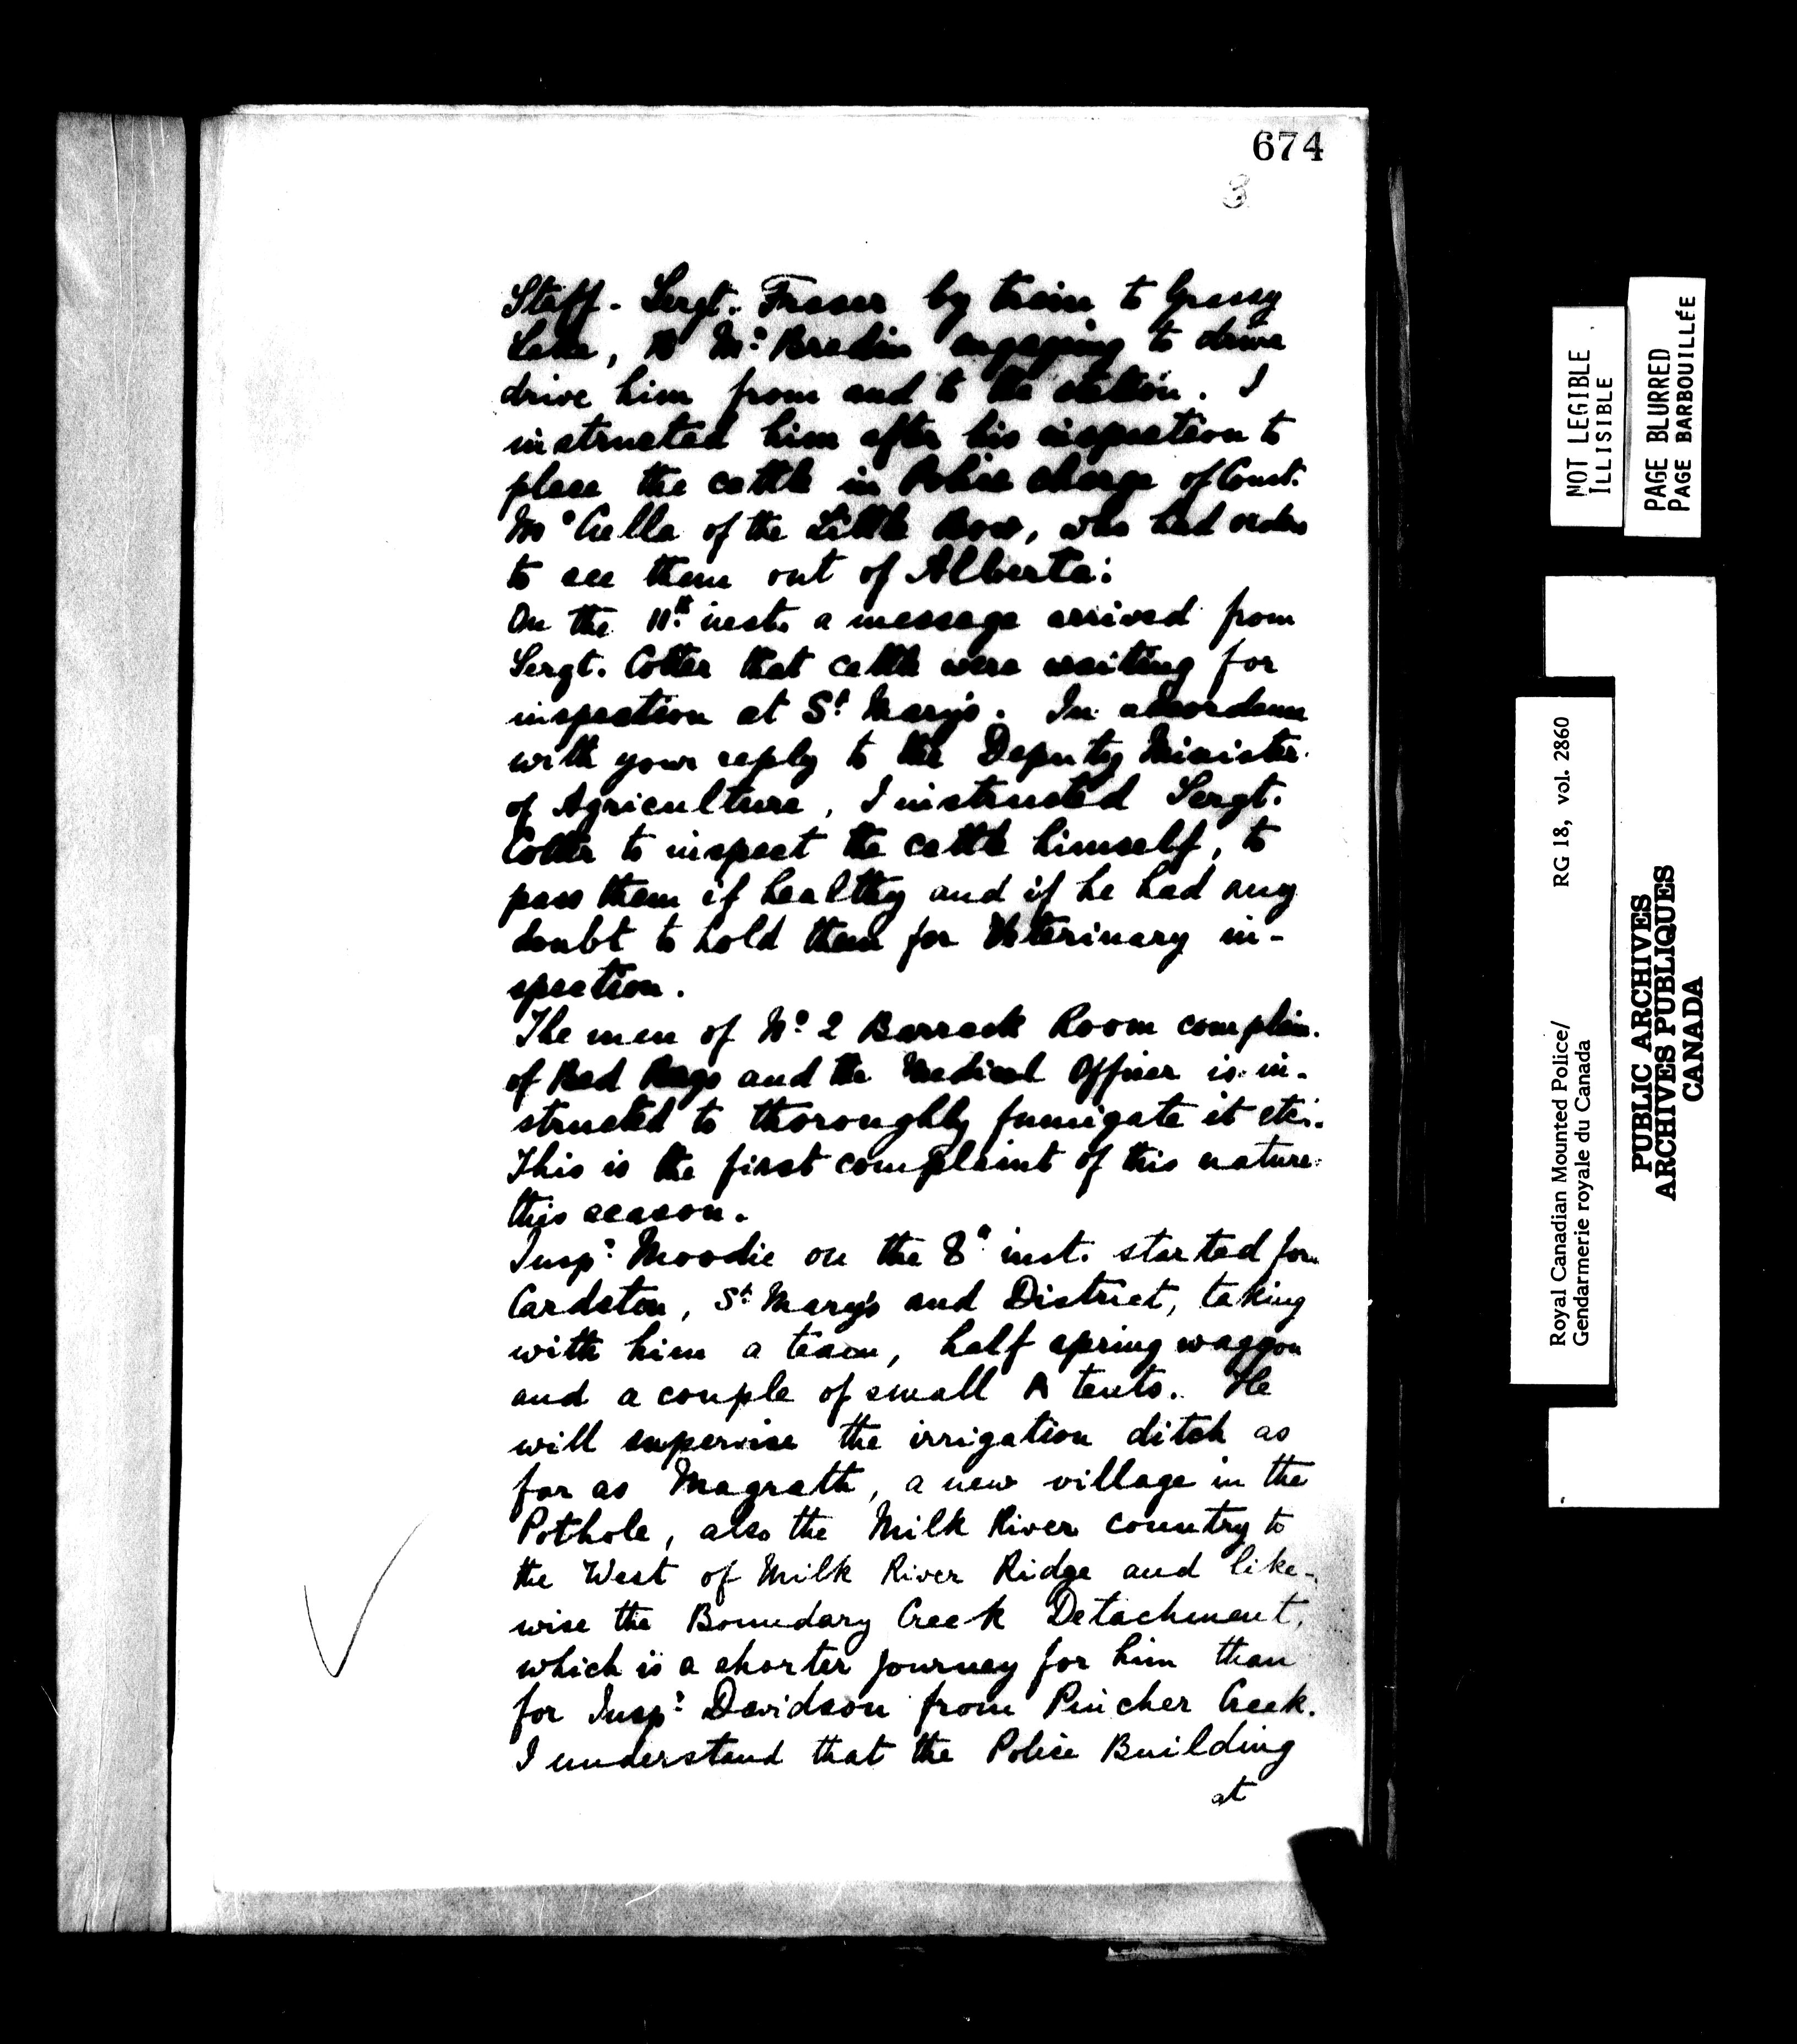 674
3
Staff-Sergt. Fraser by train to Grassy
Lake, Mr. Bredin engaging to drive
drive him from and to the station. I
instructed him after his inspection to
place the cattle in Police charge of Const.
of the Little Bow, who had orders
to see them out of Alberta:
On the 11th inst. a message arrived from
Sergt. Cotter that cattle were waiting for
inspection at St Mary's. In accordance
with your reply to the Deputy Minister
of Agriculture, I instructed Sergt.
Cotter to inspect the cattle himself, to
pass them if healthy and if he had any
doubt to hold them for Veterinary in-
spection.
The men of No 2 Barrack Room complain
of Bed Bugs and the Medical Officer is in-
structed to thoroughly fumigate it etc.
This is the first complaint of this nature
this season.
Inspr. Moodie on the 8th inst. started for
Cardston, St Mary's and District, taking
with him a team, half spring waggon
and a couple of small A tents. He
will supervise the irrigation ditch as
far as Magrath, a new village in the
Pothole, also the Milk River country to
the West of Milk River Ridge and like-
wise the Boundary Creek Detachment,
which is a shorter journey for him than
for Inspr. Davidson from Pincher Creek.
I understand that the Police Building
at
NOT LEGIBLE
ILLISIBLE
PAGE BLURRED
PAGE BARBOUILLÉE
Royal Canadian Mounted Police/ RG 18, vol. 2860
Gendarmerie royale du Canada
PUBLIC ARCHIVES
ARCHIVES PUBLIQUES
CANADA